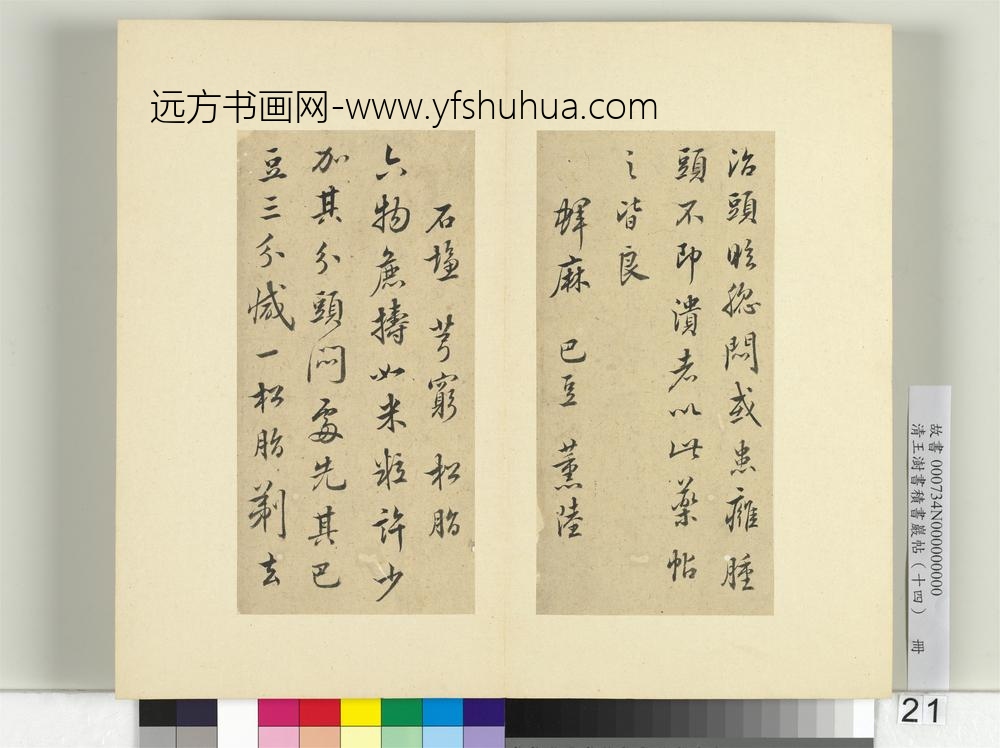 远方书画网-www.yfshuhua.com
治頭眩腦悶或患癰腫
頭不即潰者以此藥帖
之皆良
蜱麻 巴豆 薰陸
石塩 芎窮 松脂
六物麁擣如米粒許少
加其分頭悶處先其巴
豆三分減一松脂剃去
故書 000734N000000000
清王澍書積書巖帖（十四） 冊
21